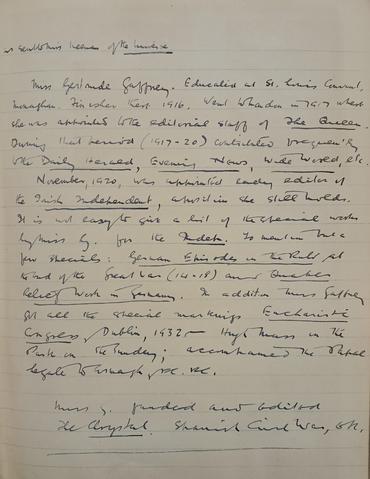 of the Universe
Miss Gertrude Gaffney. Educated at St. Louis Convent,
Monaghan. 1916. Went to London in 1917 where
she was appointed to the editorial staff of The Queen.
During that period (1917-20) contributed frequently
to the Daily Herald, Evening News, Wide World, etc.
November, 1920, was appointed editor of
the Irish Independent, a position she still holds.
It is not easy to give a list of the special works
by Miss G. for the Indep. To mention but a
few specials: German Episodes in the Ruhr, at
end of the Great War (14-18) and Quaker
Relief Work in Germany. In addition Miss Gaffney
got all the special markings Eucharistic
Congress, Dublin, 1932 — High Mass in the
Park on the Sunday; accompanied the Papal
Legate to Armagh, etc. etc.
Miss G. founded and edited
The Crystal. Spanish Civil War, etc.